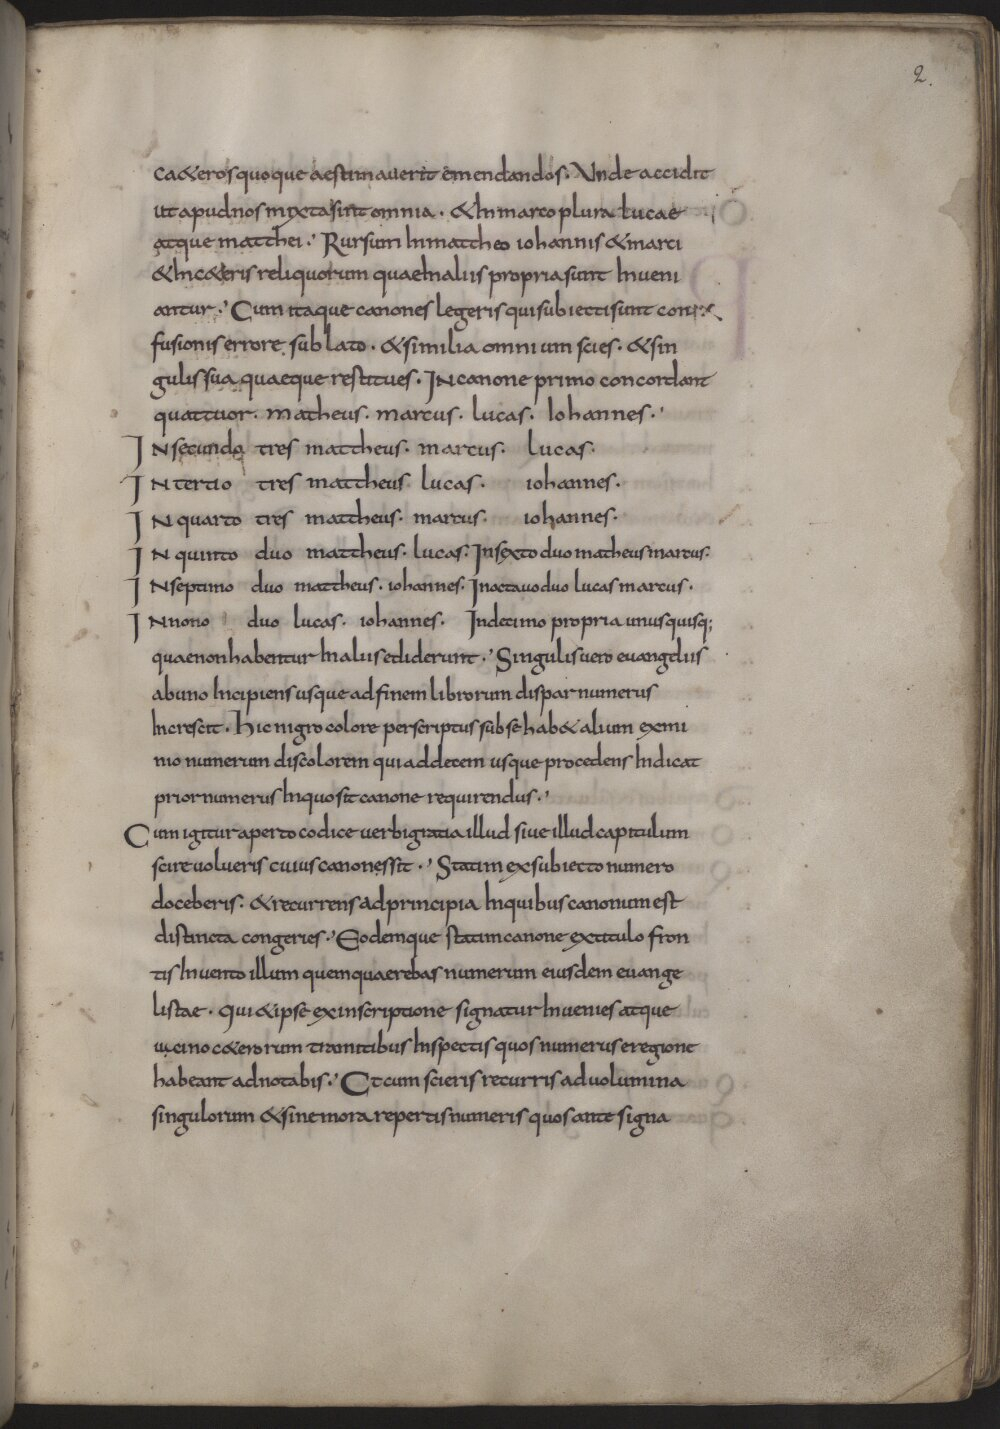 2.
ca&eros quoque aestimauerit emendandos. Unde accidit
ut apud nos mixta sint omnia. & In marco plura lucae
atque matthei. Rursum In mattheo iohannis & marci
& In c&eris reliquorum quae In aliis propria sunt Inueni
antur. Cum itaque canones legeris qui subiecti sunt con
fusionis errore sublato. & similia omnium scies. & sin
gulis sua quaeque restitues. IN canone primo concordant
quattuor. matheus. marcus. lucas. Iohannes.
IN secundo tres mattheus. marcus. lucas.
IN tertio tres mattheus lucas. iohannes.
IN quarto tres mattheus. marcus. iohannes.
IN quinto duo mattheus. lucas. In sexto duo matheus marcus.
IN septimo duo mattheus. iohannes. In octauo duo lucas marcus.
IN nono duo lucas. iohannes. In decimo propria unusquisq;
quae non habentur In aliis ediderunt. Singulis uero euangeliis
ab uno Incipiens usque ad finem librorum dispar numerus
Increscit. Hic nigro colore perscriptus sub se hab& alium ex mi
nio numerum discolorem qui ad decem usque procedens Indicat
prior numerus In quo sit canone requirendus.
Cum igitur aperto codice uerbi gratia illud siue illud capitulum
scire uolueris cuius canones sit. Statim ex subiecto numero
doceberis. & recurrens ad principia In quibus canonum est
distincta congeries. Eodemque statim canone ex titulo fron
tis Inuento illum quem quaerebas numerum eiusdem euange
listae. qui & ipse ex inscriptione signatur Inuenies atque
uicino c&erorum tramitibus Inspectis quos numerus e regione
habeant adnotabis. Et cum scieris recurris ad uolumina
singulorum & sine mora repertis numeris quos ante signa